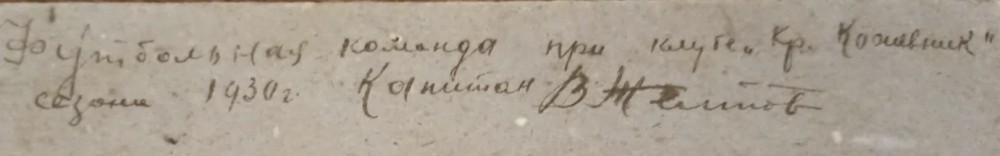 Футбольная команда при клубе „Кр. Кожевник“
сезона 1930г. Капитан В Желтов